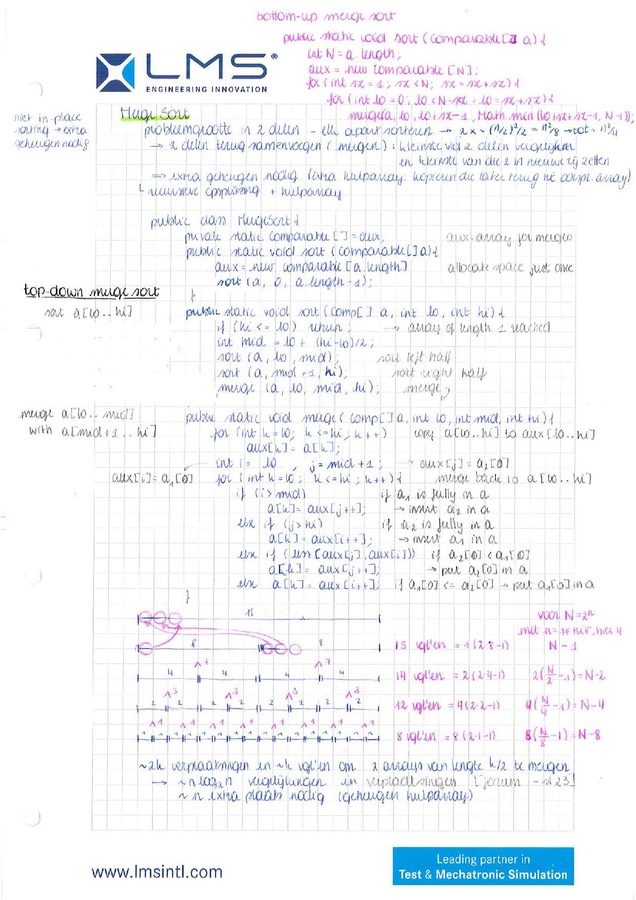 bottom-up merge sort
public static void sort (Comparable[] a) {
int N = a.length;
aux = new Comparable[N];
for (int sz = 1; sz < N; sz = sz + sz) {
for (int lo = 0; lo < N-sz; lo = sz + sz) {
merge(a, lo, lo+sz-1, Math.min(lo+sz+sz-1, N-1));
LMS®
ENGINEERING INNOVATION
niet in-place
sorting → extra
geheugen nodig
Merge Sort
probleemgrootte in 2 delen - elk apart sorteren
→ 2 delen terug samenvoegen (mergen) : kleinste v/d 2 delen vergelijken
en kleinste van die 2 in nieuwe rij zetten
⇒ extra geheugen nodig (extra hulparray
recursieve opsplitsing + hulparray
public class MergeSort {
private static Comparable [] = aux; aux array for merges
public static void sort (Comparable[] a) {
aux = new Comparable [a.length] allocate space just once
sort (a, 0, a.length-1);
}
top-down merge sort
sort a[lo..hi]
public static void sort (Comp[] a, int lo, int hi) {
if (hi <= lo) return; → array of length 1 reached
int mid = lo + (hi-lo)/2;
sort (a, lo, mid); sort left half
sort (a, mid+1, hi); sort right half
merge (a, lo, mid, hi); merge
merge a[lo..mid]
with a[mid+1..hi]
public static void merge (Comp[] a, int lo, int mid, int hi) {
for (int k=lo; k<=hi; k++) copy a[lo..hi] to aux[lo..hi]
aux[k] = a[k];
int i = lo, j = mid+1; → aux[j] = a₂[0]
aux[i] = a₁[0]
for (int k=lo; k<=hi; k++) { merge back to a[lo..hi]
if (i > mid) if a₁ is fully in a
a[k] = aux[j++]; → insert a₂ in a
else if (j > hi) if a₂ is fully in a
a[k] = aux[i++]; → insert a₁ in a
else if (less(aux[j], aux[i])) if a₂[0] < a₁[0]
a[k] = aux[j++]; → put a₂[0] in a
else a[k] = aux[i++]; if a₁[0] <= a₂[0] → put a₁[0] in a
}
16
voor N = 2ⁿ
8 8
15 vgl'en = 1(2·8-1) N-1
4 4 4 4
14 vgl'en = 2(2·4-1) 2(N/2 -1) = N-2
2 2 2 2 2 2 2 2
12 vgl'en = 4(2·2-1) 4(N/4 -1) = N-4
8 vgl'en = 8(2·1-1) 8(N/8 -1) = N-8
~2k verplaatsingen en ~k vgl'en om 2 arrays van lengte k/2 te mergen
→ ~n log₂n vergelijkingen en verplaatsingen
~n extra plaats nodig (geheugen hulparray)
www.lmsintl.com
Leading partner in
Test & Mechatronic Simulation